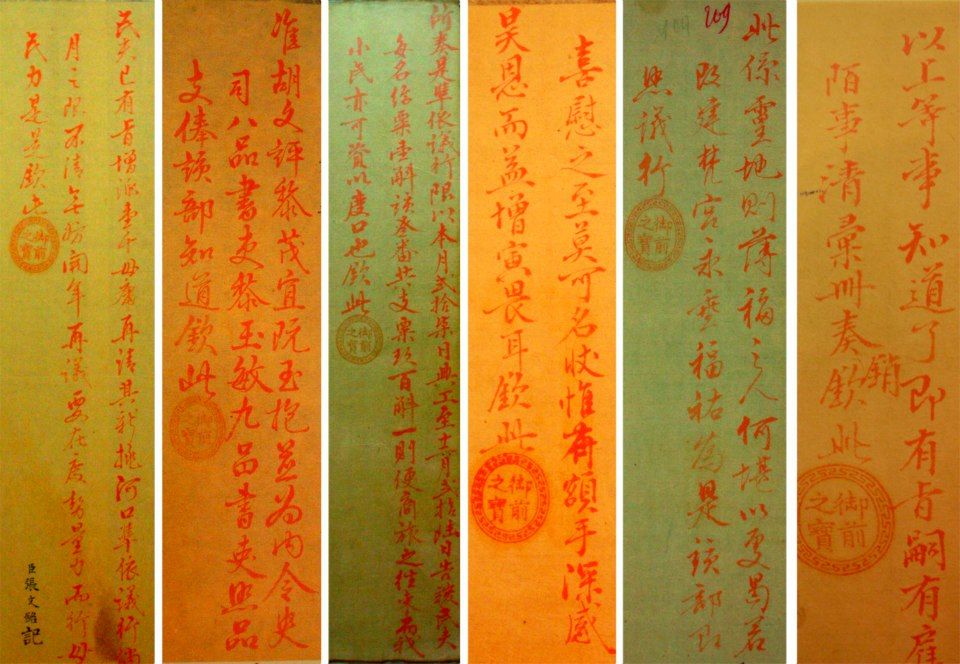 民夫已有旨增派壹千毋庸再請其新挑河口準依議行倘
月之限不清無妨開年再議要在度勢量力而行毋
民力是是欽此
御前之寶
臣張文記
准胡文評黎茂宜阮玉抱並為內令史
司八品書吏黎玉敏九品書吏照品
支俸該部知道欽此
御前之寶
所奏是準依議行限以本月弍拾柒日興工至十一月弍拾陸日告竣民夫
每名仔粟壹斛該叁番共支粟玖百斛一則便商旅之往來
小民亦可資以口也欽此
御前之寶
喜慰之至莫可名狀惟有額手深感
昊恩而益增寅畏耳欽此
御前之寶
209
此係靈地則薄福之人何堪以受曷若
改建梵宮永垂福祐為是該部即
照議行
御前之寶
以上等事知道了即有旨嗣有雇
陌事清彙冊奏銷欽此
御前之寶